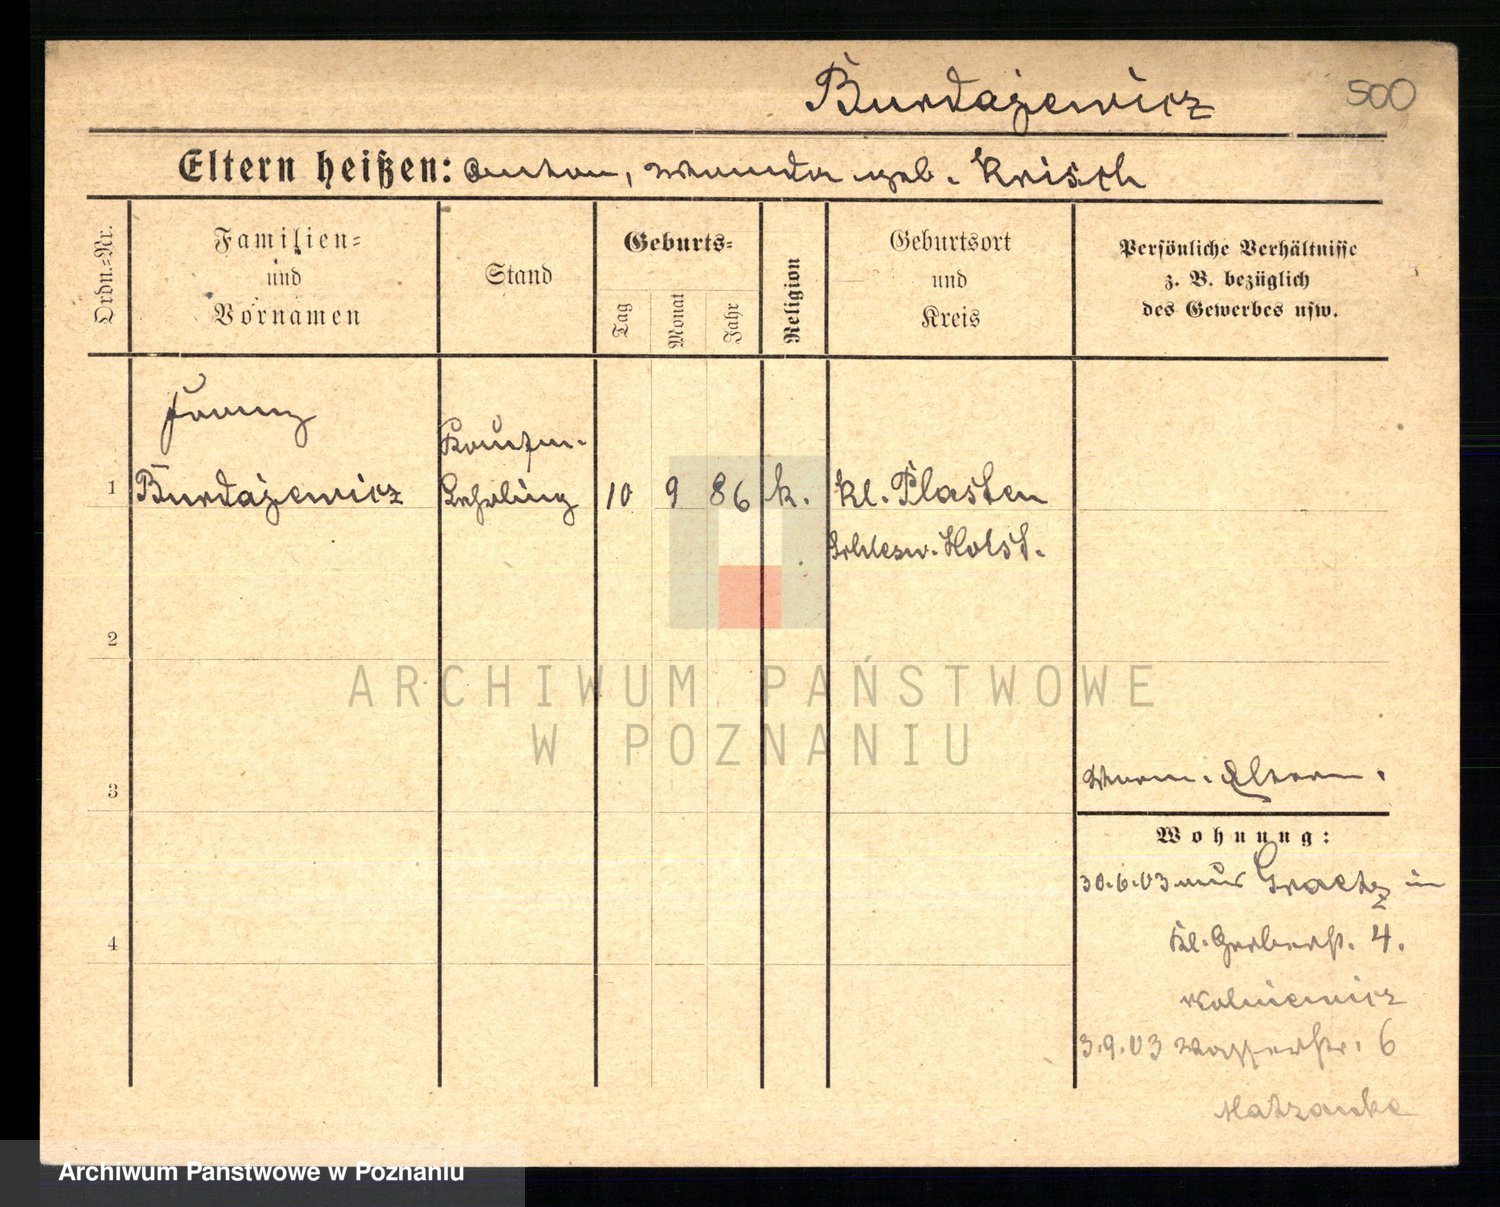 Burdajewicz 500
Eltern heißen: Anton, Wanda geb. Krisch
Ordn.-Nr.
Familien-
und
Vornamen
Stand
Geburts-
Tag
Monat
Jahr
Religion
Geburtsort
und
Kreis
Persönliche Verhältnisse
z. B. bezüglich
des Gewerbes usw.
Franz
Kaufm.
1 Burdajewicz Lehrling 10 9 86 k. Kl. Plasten
Schlesw. Holst.
2
ARCHIWUM PAŃSTWOWE
W POZNANIU
3
Eltern.
Wohnung:
30.6.03 aus Graetz in
Kl. Gerberstr. 4.
4
Wolniewicz
3.9.03 Wasserstr. 6
Archiwum Państwowe w Poznaniu